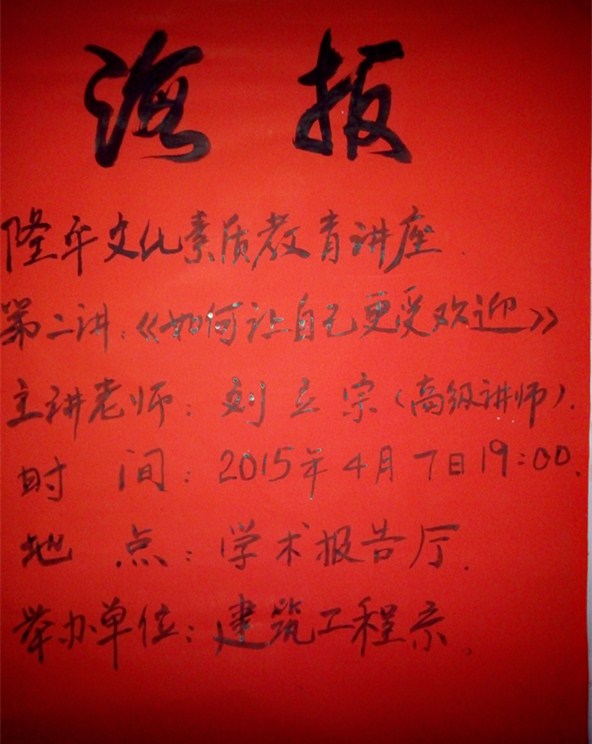 海报
隆平文化素质教育讲座.
第二讲:《如何让自己更受欢迎》
主讲老师: 刘立宗(高级讲师).
时 间: 2015年4月7日19:00.
地 点: 学术报告厅.
举办单位: 建筑工程系.